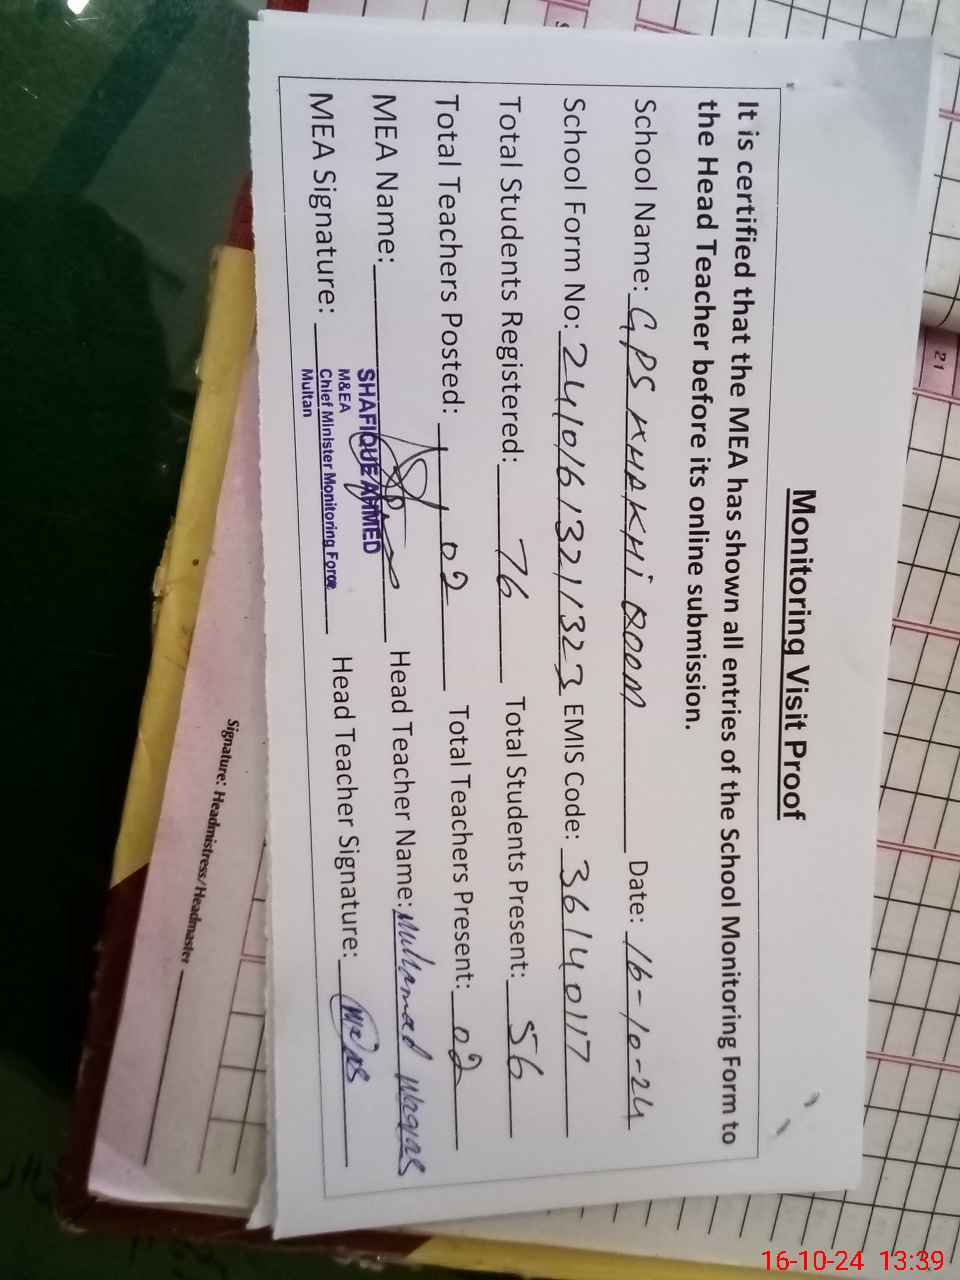 Monitoring Visit Proof
It is certified that the MEA has shown all entries of the School Monitoring Form to
the Head Teacher before its online submission.
School Name: GPS KHAKHI QOOM Date: 16-10-24
School Form No: 2410161321323 EMIS Code: 36140117
Total Students Registered: 76 Total Students Present: 56
Total Teachers Posted: 02 Total Teachers Present: 02
MEA Name: Head Teacher Name: Muhamad Waqas
SHAFIQUE AHMED
M&EA
MEA Signature: Chief Minister Monitoring Force Head Teacher Signature:
Multan
Signature: Headmistress/Headmaster
21
16-10-24 13:39